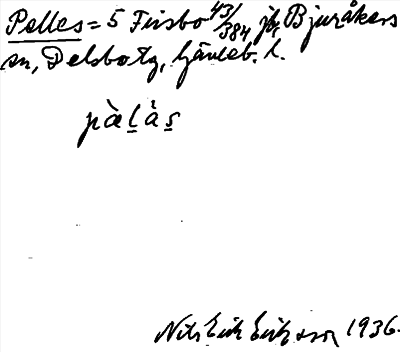 Pelles = 5 Firsbo 43/384 jb, Bjuråkers
sn, Delsbo tg, Gävleb. l.
pàl̲ås̲
Nils Erik Eriksson 1936.